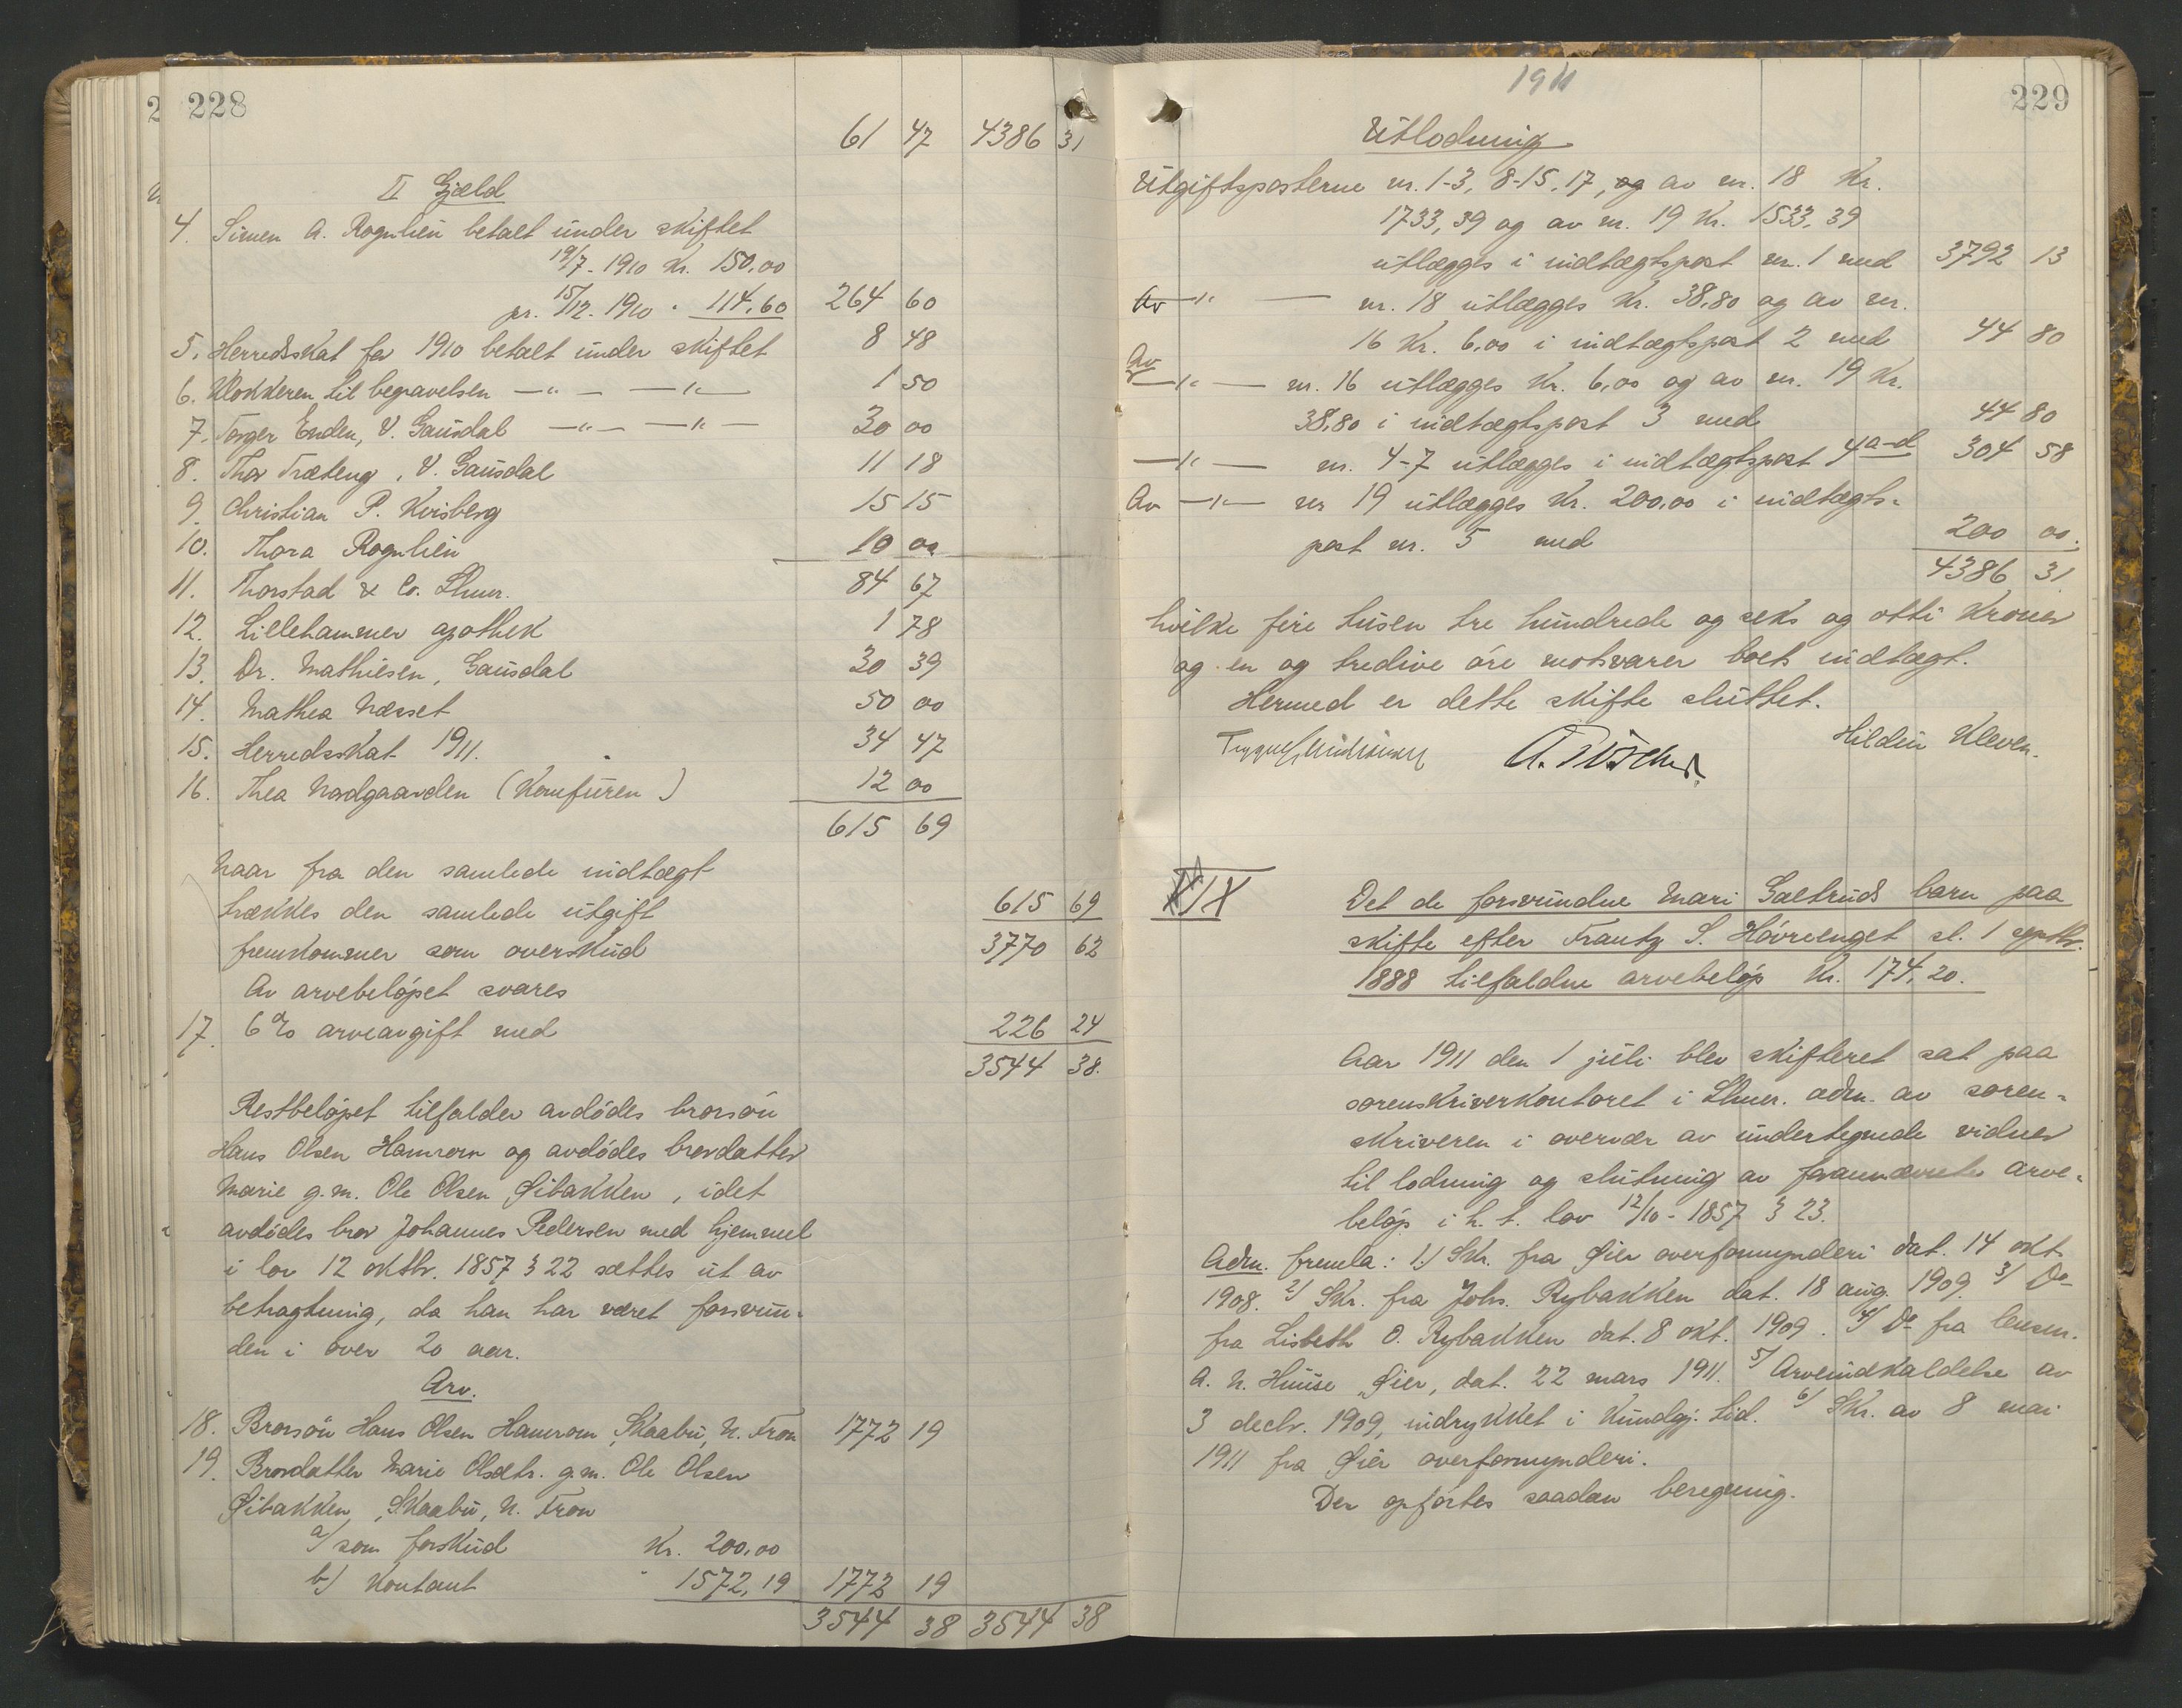 228
61 47 4386 31
II Gjæld
4. Simen A. Rognlien betalt under skiftet
19/7- 1910 Kr. 150,00
pr. 15/12- 1910 " 114,60 264 60
5. Herredsskat for 1910 betalt under skiftet 8 48
6. Klokkeren til begravelsen —"— —"— 1 50
7. Torger Enden, V. Gausdal —"— —"— 30 00
8. Thor Træteng, V. Gausdal 11 18
9. Christian P. Kvisberg 15 15
10. Thora Rognlien 10 00
11. Thorstad & Co. Lhmr. 84 67
12. Lillehammer apothek 1 78
13. Dr. Mathiesen, Gausdal 30 39
14. Mathea Næsset 50 00
15. Herredsskat 1911. 34 47
16. Thea Nordgaarden (Komfuren) 12 00
615 69
Naar fra den samlede indtægt
trækkes den samlede utgift 615 69
fremkommer som overskud 3770 62
Av arvebeløpet svares
17. 6 % arveavgift med 226 24
3544 38.
Restbeløpet tilfalder avdødes brorsøn
Hans Olsen Hamrom og avdødes brordatter
Marie g.m. Ole Olsen Øibakken, idet
avdødes bror Johannes Pedersen med hjemmel
i lov 12 oktbr. 1857 § 22 sættes ut av
betragtning, da han har været forsvun-
den i over 20 aar.
Arv.
18. Brorsøn Hans Olsen Hamrom, Skaabu, N. Fron 1772 19
19. Brordatter Marie Olsdtr. g.m. Ole Olsen
Øibakken, Skaabu, N. Fron
a/ som forskud Kr. 200,00
b/ Kontant " 1572,19 1772 19
3544 38 3544 38
1911
229
Utlodning
Utgiftsposterne nr. 1-3, 8-15, 17, og av nr. 18 Kr.
1733,39 og av nr. 19 Kr. 1533,39
utlægges i indtægtspost nr. 1 med 3792 13
Av —"— nr. 18 utlægges Kr. 38,80 og av nr.
16 Kr. 6,00 i indtægtspost 2 med 44 80
Av —"— nr. 16 utlægges Kr. 6,00 og av nr. 19 Kr.
38,80 i indtægtspost 3 med 44 80
—"— nr. 4-7 utlægges i indtægtspost 4 a-d 304 58
Av —"— nr 19 utlægges Kr. 200,00 i indtægts-
post nr. 5 med 200 00.
4386 31
hvilke fire tusen tre hundrede og seks og otti kroner
og en og tredive øre motsvarer boets indtægt.
Hermed er dette skifte sluttet.
Hildur Kleven.
XIX
Det de forsvundne Mari Galtruds barn paa
skifte efter Frantz S. Høvrenget sl. 1 septbr.
1888 tilfaldne arvebeløp Kr. 174,20.
Aar 1911 den 1 juli blev skifteret sat paa
sorenskriverkontoret i Lhmr. adm. av soren-
skriveren i overvær av undertegnede vidner
til lodning og slutning av foranævnte arve-
beløp i h. t. lov 12/10- 1857 § 23.
Adm. fremla: 1/ Skr. fra Øier overformynderi dat. 14 okt.
1908. 2/ Skr. fra Johs. Rybakken dat. 18 aug. 1909. 3/ Do
fra Lisbeth O. Rybakken dat. 8 okt. 1909. 4/ Do fra lensm.
A. N. Huuse Øier, dat. 22 mars 1911. 5/ Arveindkaldelse av
3 decbr. 1909, indrykket i Kundgj. tid. 6/ Skr. av 8 mai
1911 fra Øier overformynderi.
Der opførtes saadan beregning.